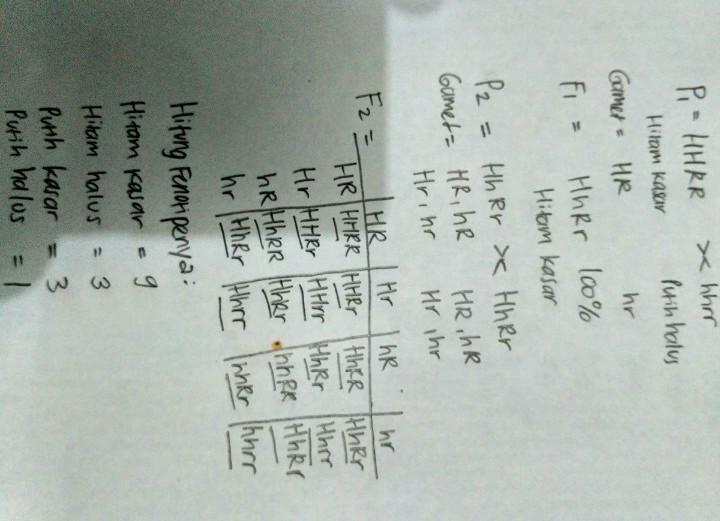 P1 = HHRR × hhrr
Hitam kasar Putih halus
Gamet = HR hr
F1 = HhRr 100%
Hitam kasar
P2 = HhRr × HhRr
Gamet = HR, hR HR, hR
Hr, hr Hr, hr
F2 =
HR Hr hR hr
HR HHRR HHRr HhRR HhRr
Hr HHRr HHrr HhRr Hhrr
hR HhRR HhRr hhRR HhRr
hr HhRr Hhrr hhRr hhrr
Hitung Fenotipenya :
Hitam kasar = 9
Hitam halus = 3
Putih kasar = 3
Putih halus = 1